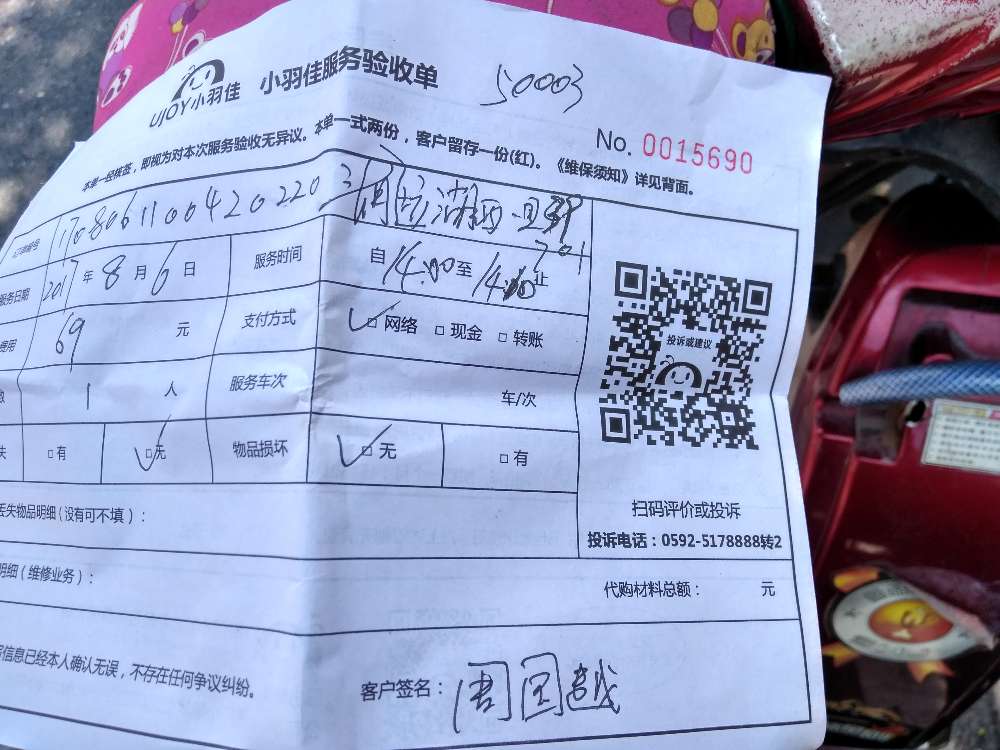 UJOY小羽佳 小羽佳服务验收单 50003
No. 0015690
本单一经核签，即视为对本次服务验收无异议。本单一式两份，客户留存一份(红)。《维保须知》详见背面。
订单编号 170806110042022
701
服务日期 2017年8月6日 服务时间 自14:00至 止
费用 69 元 支付方式 ✓□网络 □现金 □转账
数 1 人 服务车次 车/次
失 □有 ✓□无 物品损坏 ✓□无 □有
投诉或建议
扫码评价或投诉
投诉电话：0592-5178888转2
丢失物品明细(没有可不填)：
明细(维修业务)：
代购材料总额： 元
信息已经本人确认无误，不存在任何争议纠纷。
客户签名：周国越